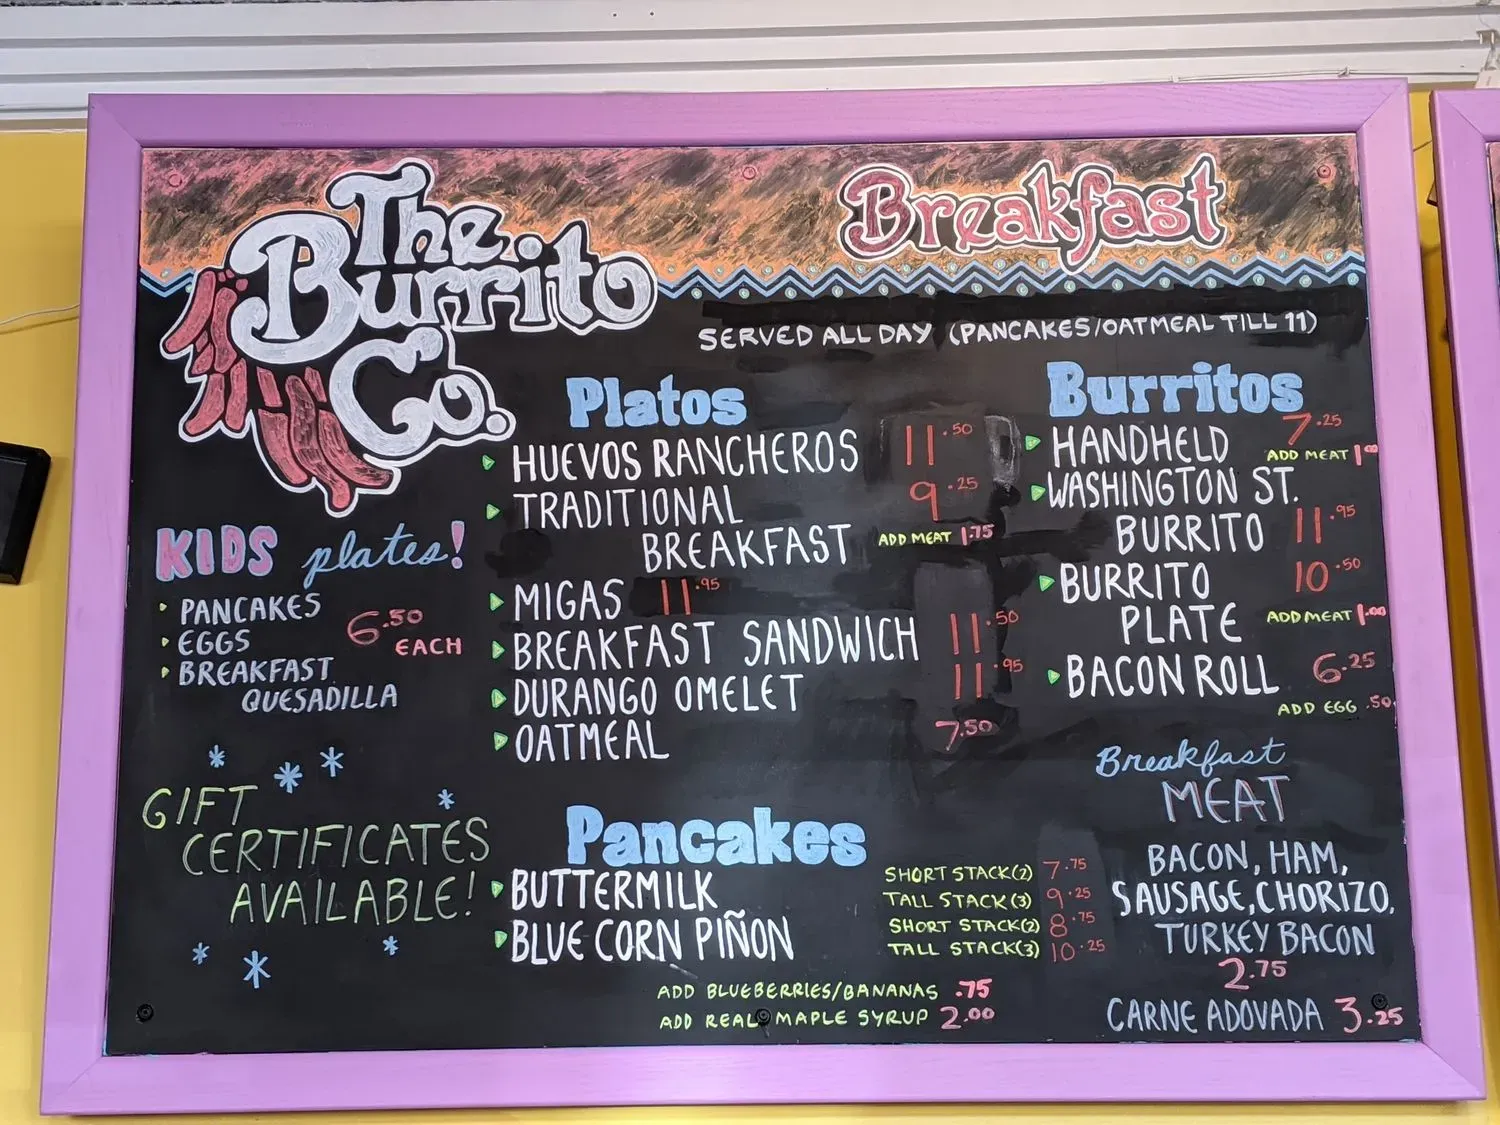 The
Burrito
Co.
Breakfast
SERVED ALL DAY (PANCAKES/OATMEAL TILL 11)
KIDS plates!
PANCAKES
EGGS
BREAKFAST
QUESADILLA
6.50
EACH
GIFT
CERTIFICATES
AVAILABLE!
Platos
HUEVOS RANCHEROS 11.50
TRADITIONAL 9.25
BREAKFAST ADD MEAT 1.75
MIGAS 11.95
BREAKFAST SANDWICH 11.50
DURANGO OMELET 11.95
OATMEAL 7.50
Pancakes
BUTTERMILK
BLUE CORN PIÑON
SHORT STACK(2) 7.75
TALL STACK(3) 9.25
SHORT STACK(2) 8.75
TALL STACK(3) 10.25
ADD BLUEBERRIES/BANANAS .75
ADD REAL MAPLE SYRUP 2.00
Burritos
HANDHELD 7.25
ADD MEAT 1.00
WASHINGTON ST.
BURRITO 11.95
BURRITO 10.50
PLATE ADD MEAT 1.00
BACON ROLL 6.25
ADD EGG .50
Breakfast
MEAT
BACON, HAM,
SAUSAGE, CHORIZO,
TURKEY BACON
2.75
CARNE ADOVADA 3.25